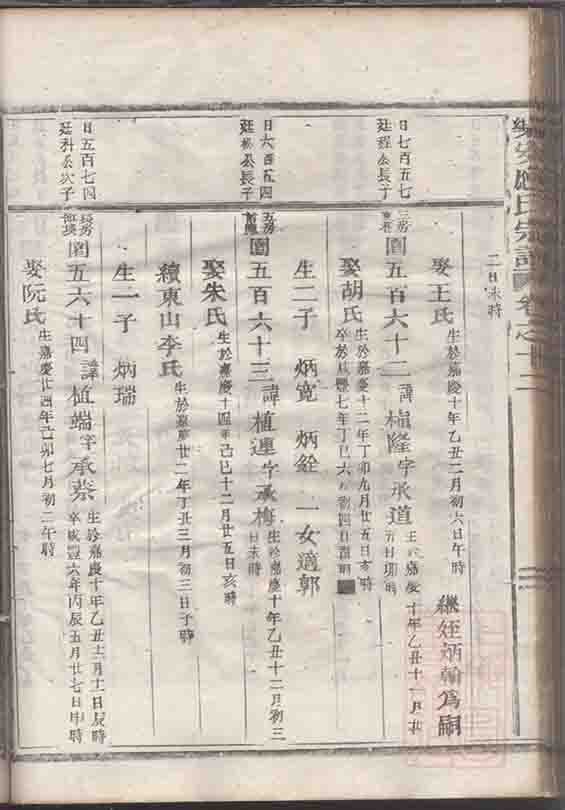 應氏宗譜 卷之十二
二日未時
娶王氏 生於嘉慶十年乙丑二月初六日午時 繼姪炳翰爲嗣
日七百五七
廷程公長子
圍五百六十二 諱植隆字承道 生於嘉慶十年乙丑十一月廿五日卯時
娶胡氏 生於嘉慶十二年丁卯九月廿五日亥時
卒於咸豐七年丁巳六月初四日酉時
生二子 炳寬 炳銓 一女適郭
日六百五四
廷程公長子
圍五百六十三 諱植連字承梅 生於嘉慶十年乙丑十二月初三日未時
娶朱氏 生於嘉慶十四年己巳十二月廿五日亥時
續東山李氏 生於嘉慶廿二年丁丑三月初三日子時
生二子 炳瑞
日五百七四
廷科公次子
圍五六十四 諱植端字承蔡 生於嘉慶十年乙丑十二月十一日辰時
卒咸豐六年丙辰五月廿七日申時
娶阮氏 生嘉慶廿四年己卯七月初二午時